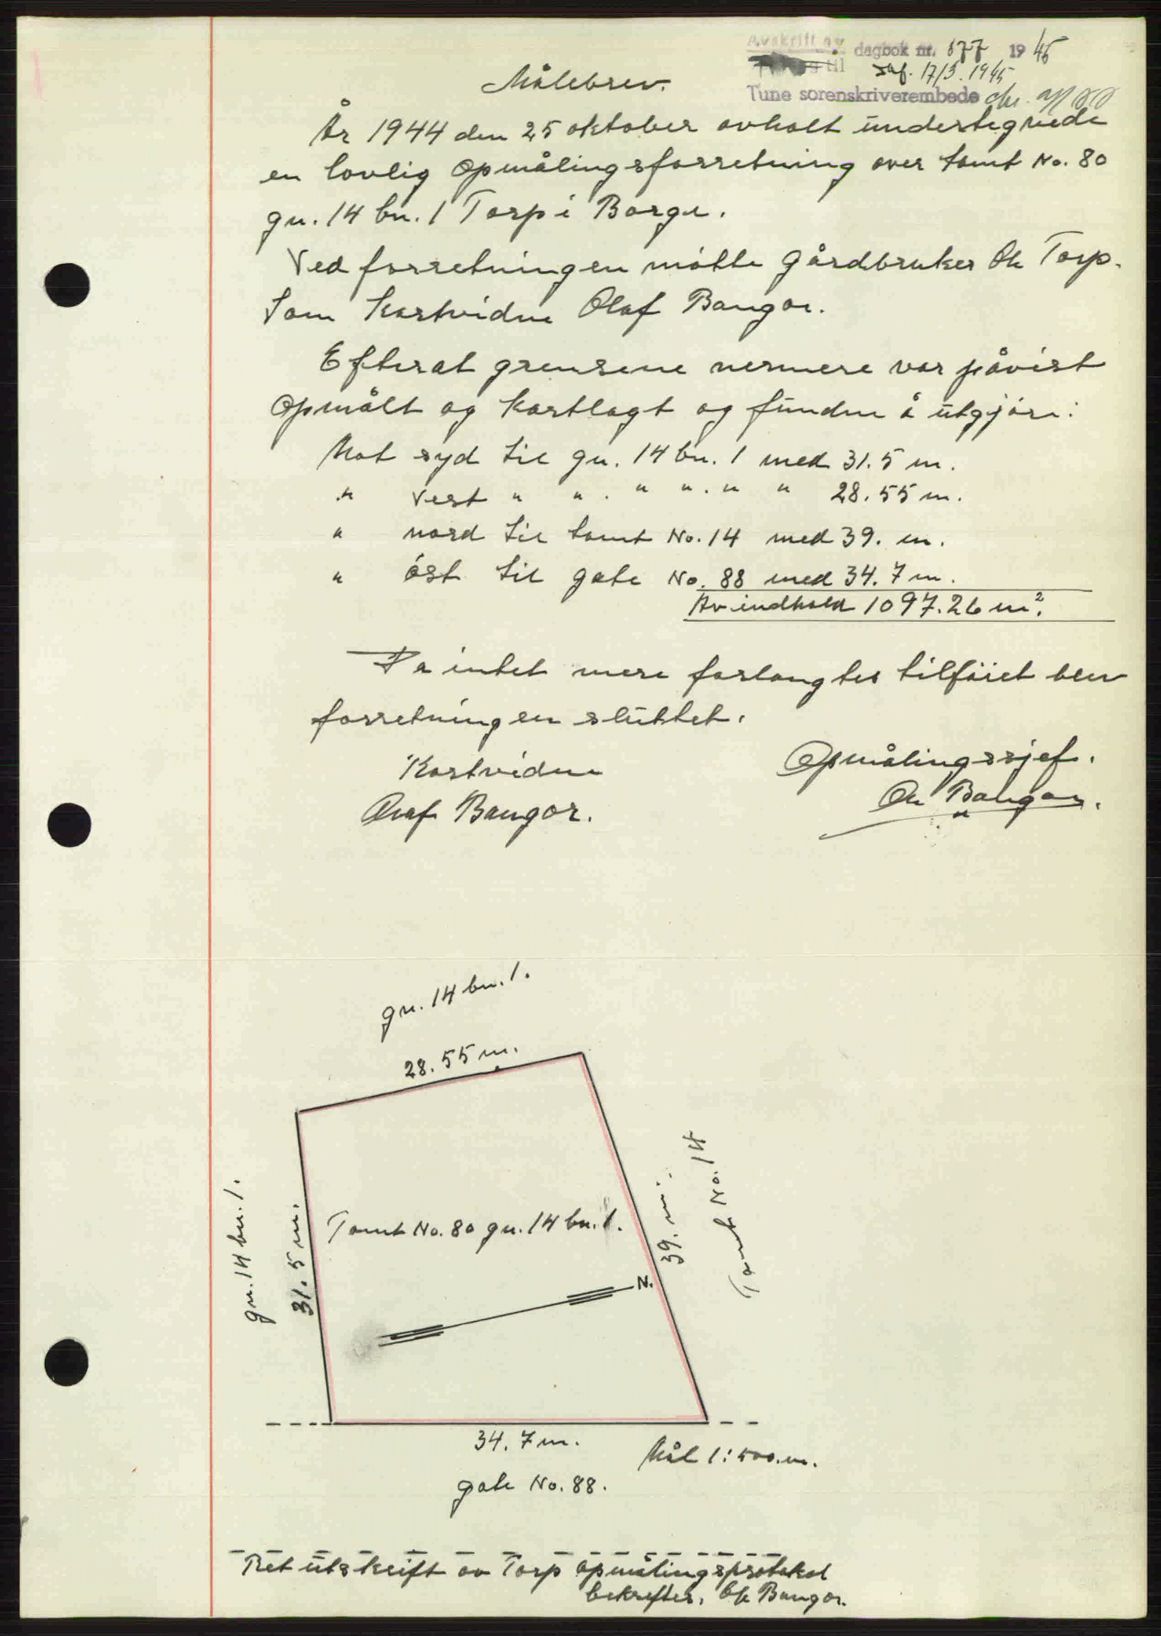 Avskrift av dagbok nr. 577 1945
til
17/3. 1945
Tune sorenskriverembede
Målebrev.
År 1944 den 25 oktober avholt undertegnede
en lovlig opmålingsforretning over tomt No. 80
gn. 14 bn. 1 Torp i Borge.
Ved forretningen møtte gårdbruker Ole Torp.
Som kartvidne Olaf Bangor.
Efterat grensene nermere var påvist
opmålt og kartlagt og fundne å utgjøre:
Mot syd til gn. 14 bn. 1 med 31.5 m.
" vest " " . " " . " " 28.55 m.
" nord til tomt No. 14 med 39. m.
" øst til gate No. 88 med 34.7 m.
Av indhold 1097.26 m².
Da intet mere forlangtes tilføiet blev
forretningen sluttet.
Kartvidne
Olaf Bangor.
Opmålingssjef.
Ole Bangor.
gn. 14 bn. 1.
28.55 m.
gn. 14 bn. 1.
31.5 m.
Tomt No. 80 gn. 14 bn. 1.
N.
39. m.
Tomt No. 14
34.7 m.
Mål 1:500. m.
gate No. 88.
Ret utskrift av Torp opmålingsprotokol
bekreftes. Ole Bangor.